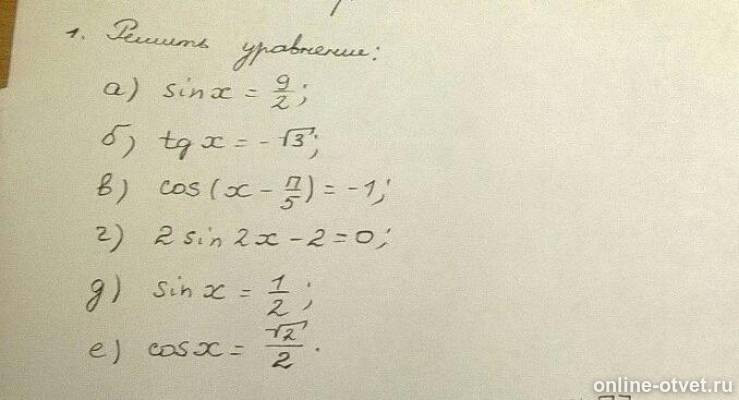 1. Решить уравнение:
а) sin x = 9/2;
б) tg x = -√3;
в) cos(x - π/5) = -1;
г) 2 sin 2x - 2 = 0;
д) sin x = 1/2;
е) cos x = √2/2.
online-otvet.ru